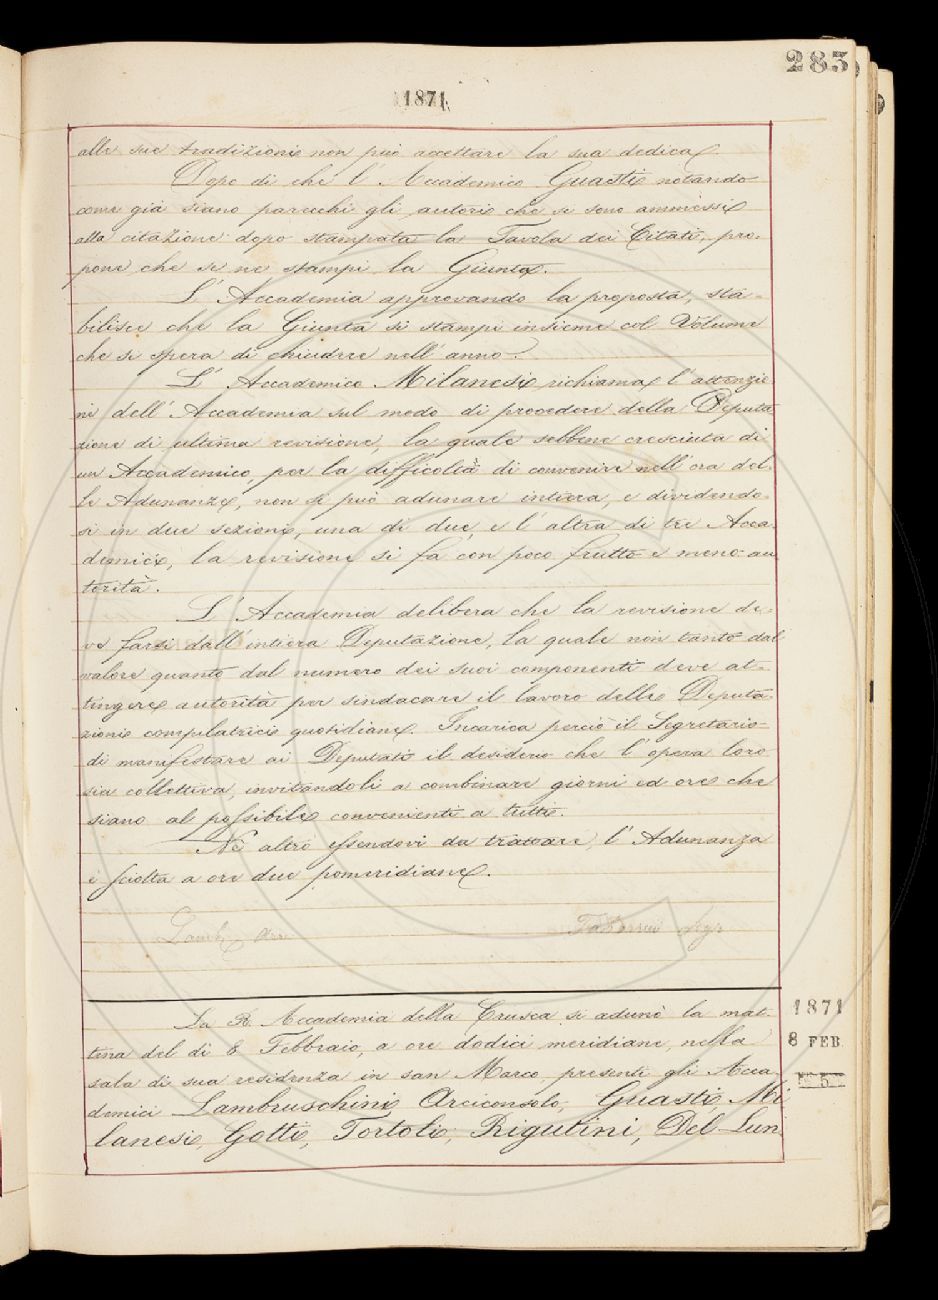 283
1871
alle sue tradizioni non può accettare la sua dedica.
Dopo di che l'Accademico Guasti notando
come già siano parecchi gli autori che si sono ammessi
alla citazione dopo stampata la Tavola dei Citati, pro-
pone che se ne stampi la Giunta.
L'Accademia approvando la proposta, sta-
bilisce che la Giunta si stampi insieme col Volume
che si spera di chiudere nell'anno.
L'Accademico Milanesi richiama l'attenzio
ne dell'Accademia sul modo di procedere della Deputa
zione di ultima revisione, la quale sebbene cresciuta di
un Accademico, per la difficoltà di convenire nell'ora del-
le Adunanze, non si può adunare intiera, e dividendo-
si in due sezioni, una di due, e l'altra di tre Acca-
demici, la revisione si fa con poco frutto e meno au
torità.
L'Accademia delibera che la revisione de-
ve farsi dall'intiera Deputazione, la quale non tanto dal
valore quanto dal numero dei suoi componenti deve at-
tingere autorità per sindacare il lavoro delle Deputa-
zioni compilatrici quotidiane. Incarica perciò il Segretario
di manifestare ai Deputati il desiderio che l'opera loro
sia collettiva, invitandoli a combinare giorni ed ore che
siano al possibile convenienti a tutti.
Nè altro essendovi da trattare, l'Adunanza
è sciolta a ore due pomeridiane.
Tabarrini Segr
La R. Accademia della Crusca si adunò la mat-
tina del dì 8 Febbraio, a ore dodici meridiane, nella
1871
8 FEB.
N° 5
sala di sua residenza in san Marco, presenti gli Acca
demici Lambruschini Arciconsolo, Guasti Mi
lanesi, Gotti, Tortoli, Rigutini, Del Lun